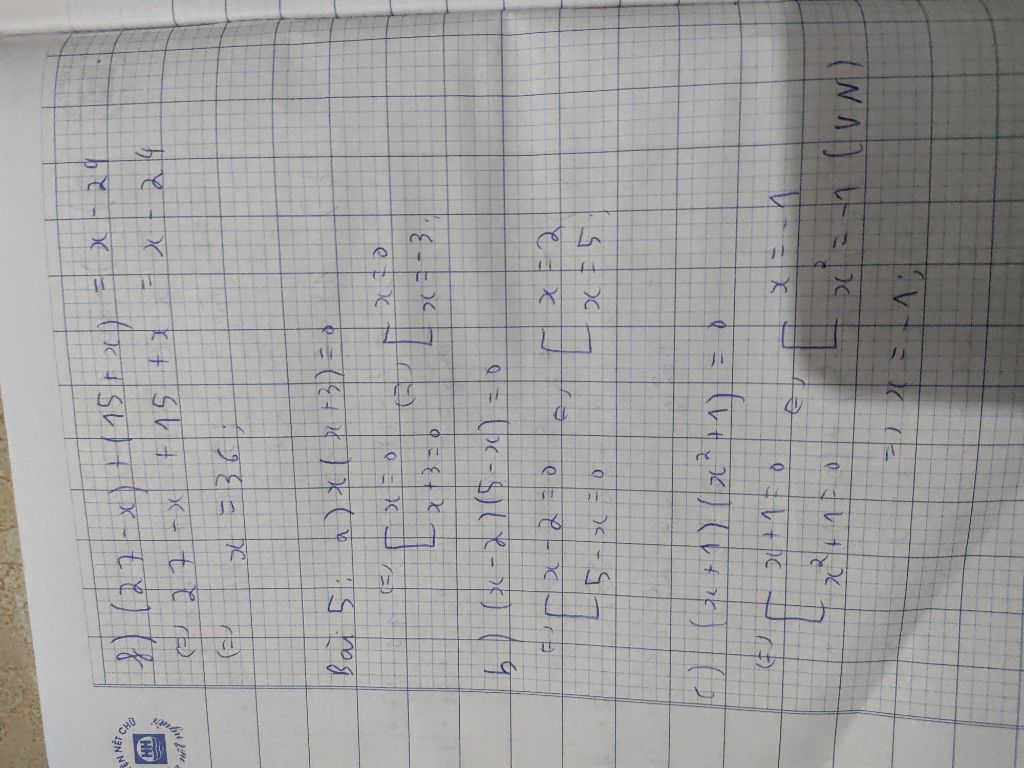 f) (27 - x) + (15 + x) = x - 24
(=) 27 - x + 15 + x = x - 24
(=) x = 36;
Bài 5: a) x(x+3)=0
(=) [ x=0 (=) [ x=0
x+3=0 x=-3;
b) (x-2)(5-x)=0
(=) [ x-2=0 (=) [ x=2
5-x=0 x=5;
c) (x+1)(x²+1)=0
(=) [ x+1=0 (=) [ x=-1
x²+1=0 x²=-1 (VN)
=) x=-1;
NÉT CHỮ